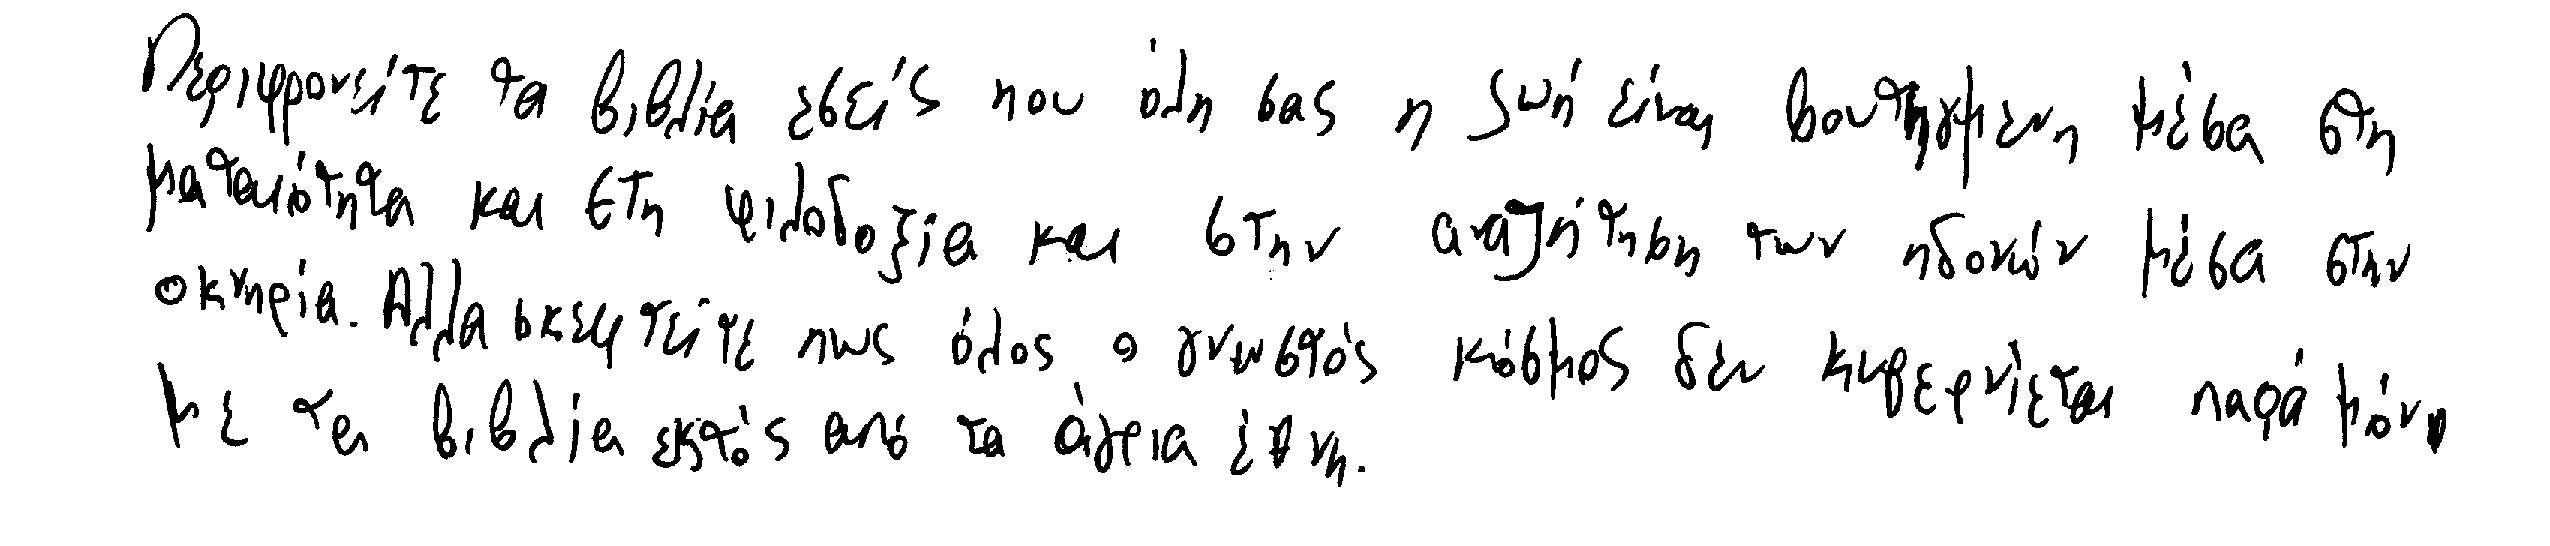 Περιφρονείτε τα βιβλία εσείς που όλη σας η ζωή είναι βουτηγμενη μέσα στη
ματαιότητα και στη φιλοδοξία και στην αναζήτηση των ηδονών μέσα στην
οκνηρία. Αλλα σκεφτείτε πως όλος ο γνωστός κόσμος δεν κυβερνιέται παρά μόνο
με τα βιβλία εκτός από τα άγρια έθνη.